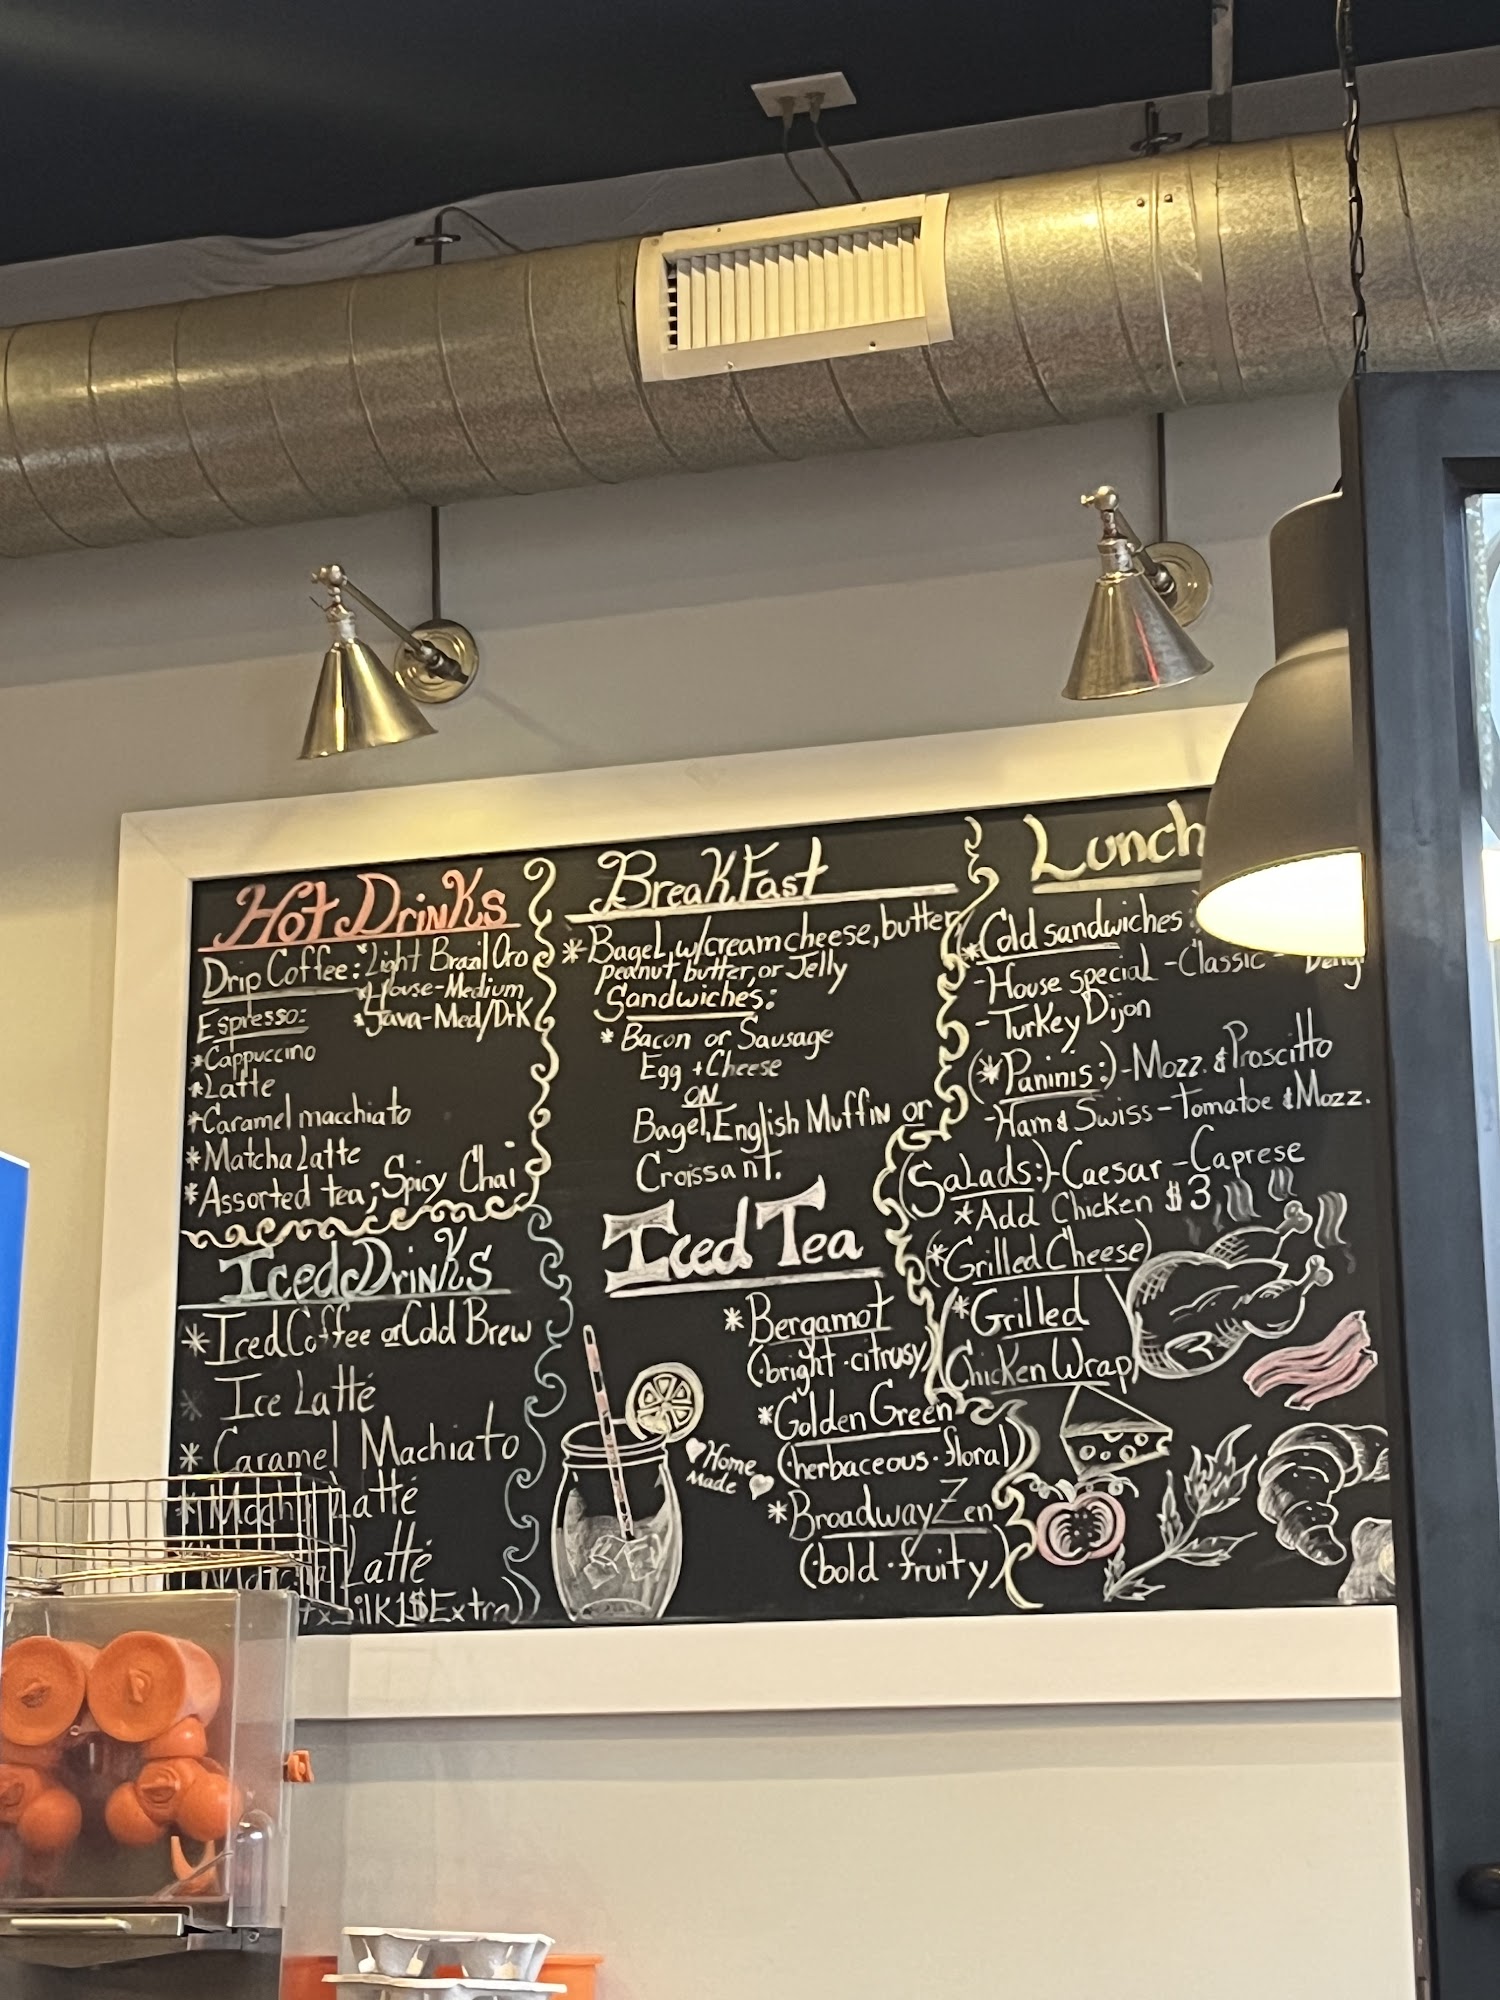 Hot Drinks
Drip Coffee: *Light Brazil Oro
*House-Medium
*Java-Med/Drk
Espresso:
*Cappuccino
*Latte
*Caramel macchiato
*Matcha Latte
*Assorted tea; Spicy Chai
Iced Drinks
*Iced Coffee or Cold Brew
* Ice Latté
* Caramel Machiato
* Latté
Latté
1$Extra)
BreakFast
*Bagel, w/creamcheese, butter,
peanut butter, or Jelly
Sandwiches:
* Bacon or Sausage
Egg + Cheese
ON
Bagel, English Muffin or
Croissant.
Iced Tea
*Bergamot
(·bright·citrusy)
*Golden Green
(·herbaceous·floral)
*Broadway Zen
(·bold·fruity)
Home
Made
Lunch
*Cold sandwiches:
-House special -Classic -
-Turkey Dijon
(*Paninis:)-Mozz. & Proscitto
-Ham & Swiss-Tomatoe & Mozz.
(Salads:)-Caesar -Caprese
*Add Chicken $3
(*Grilled Cheese)
(*Grilled
Chicken Wrap)